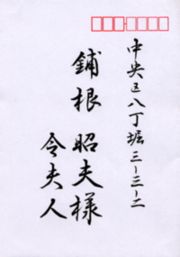 中央区八丁堀三-三-二
鋪根 昭夫様
令夫人